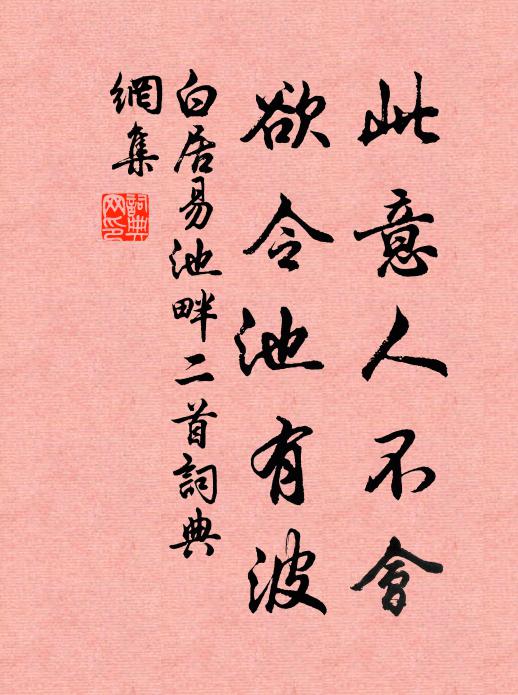 此意人不會
欲令池有波
白居易池畔二首詞典
網集
詞典網印